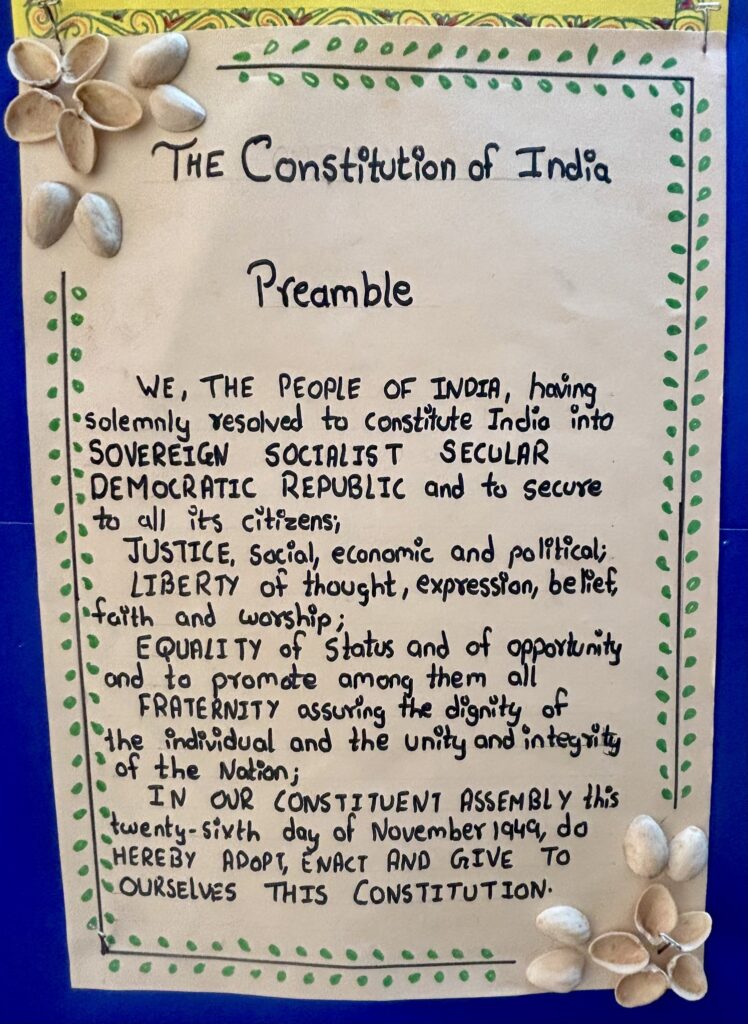 THE Constitution of India
Preamble
WE, THE PEOPLE OF INDIA, having
solemnly resolved to constitute India into
SOVEREIGN SOCIALIST SECULAR
DEMOCRATIC REPUBLIC and to secure
to all its citizens;
JUSTICE, social, economic and political;
LIBERTY of thought, expression, belief,
faith and worship;
EQUALITY of status and of opportunity
and to promote among them all
FRATERNITY assuring the dignity of
the individual and the unity and integrity
of the Nation;
IN OUR CONSTITUENT ASSEMBLY this
twenty-sixth day of November 1949, do
HEREBY ADOPT, ENACT AND GIVE TO
OURSELVES THIS CONSTITUTION.